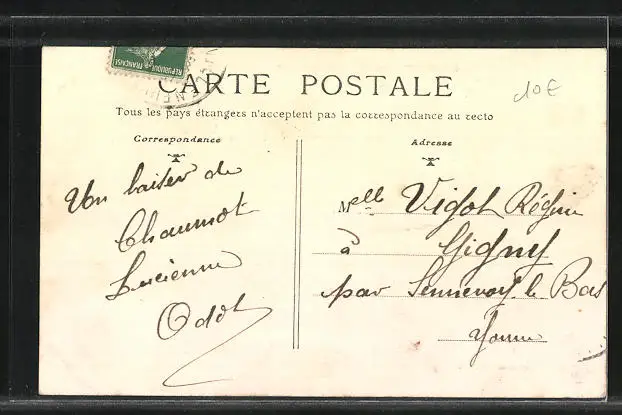 REPUBLIQUE FRANÇAISE
CARTE POSTALE
10€
Tous les pays étrangers n'acceptent pas la correspondance au recto
Correspondance
Un baiser de
Chaumot
Lucienne
Odot
Adresse
Melle Vigot Régine
à Gigny
par Sennevoy le Bas
Yonne